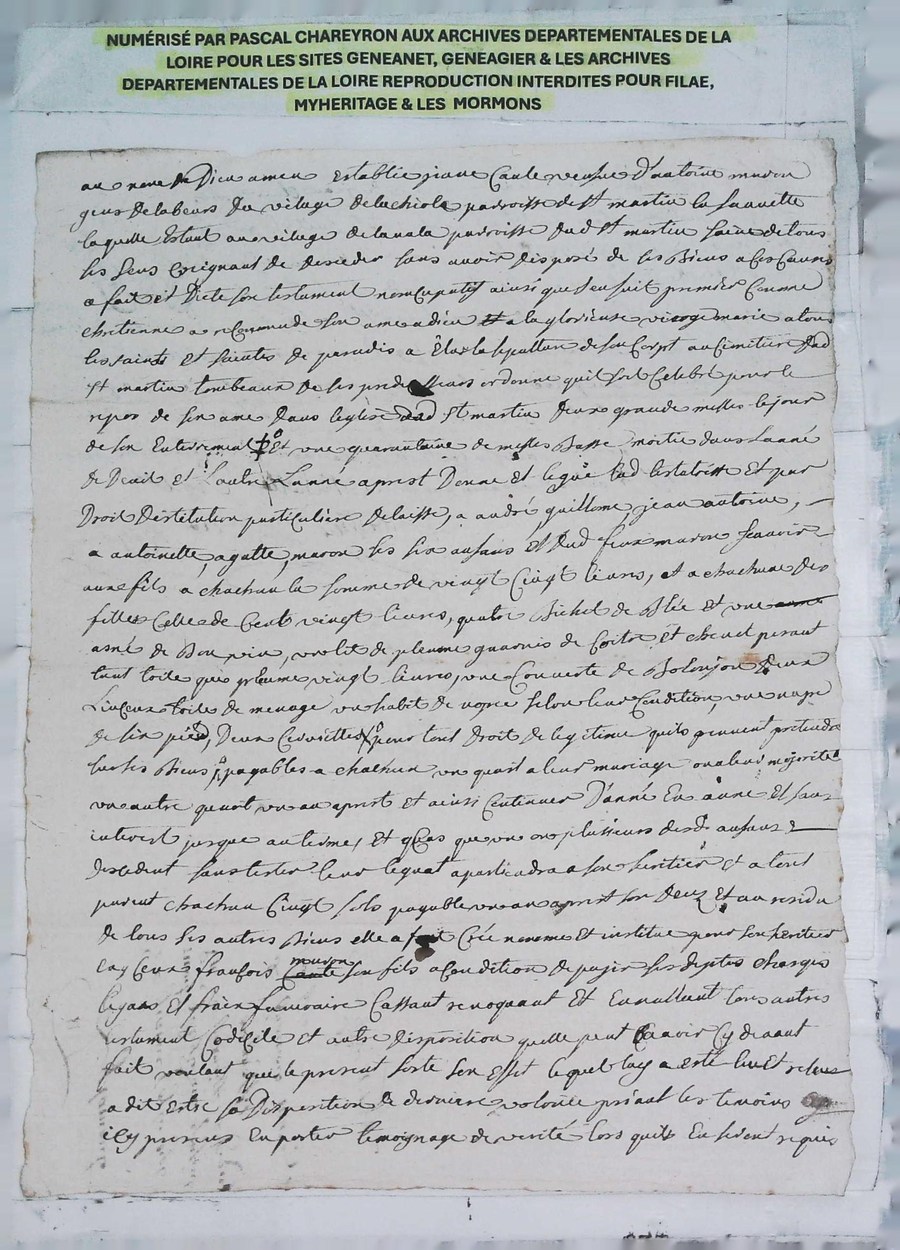 NUMÉRISÉ PAR PASCAL CHAREYRON AUX ARCHIVES DEPARTEMENTALES DE LA
LOIRE POUR LES SITES GENEANET, GENEAGIER & LES ARCHIVES
DEPARTEMENTALES DE LA LOIRE REPRODUCTION INTERDITES POUR FILAE,
MYHERITAGE & LES MORMONS
au nom de Dieu amen establie jeane veufve d'antoine muron
gens de labeurs du vilage de parroisse de st martin la sauvette
laquelle estant au vilage de parroisse dud st martin saine de tous
ses sens creignant de deceder sans avoir disposé de ses Biens a ces Causes
a fait et Dicté son testament noncupatif ainsi que s'en suit premier Comme
chretienne a recommendé son ame a dieu et a la glorieuse vierge marie a tous
les saints et saintes de paradis a Élus la sepulture de son Corps au Cimitiere dud
st martin tombeaux de ses predecesseurs ordonne quil soit Celebré pour le
repos de son ame dans leglise dud st martin Deux grande messes le jour
de son Enterrement Et une quarantaine de messes Basse moitié dans Lanné
de Deuil et L'autre Lanné aprest Donne et legue lad testatrisse Et par
Droit Distitution particuliere delaisse, a andré guillome jean antoine,
a antoinette, agatte, muron ses six anfans et dud feux muron scavoir
aux fils a chachun la somme de vingt Cinqt livres, et a chachune des
filles Celle de Cent vingt livres, quatre Bichet de Blée et une
asné de Bon vin, un lit de pleume guarnis de Coitre et chevet pesant
tant toile que pleume vingt livres, une Couverte de Deux
Linceux toile de menage un habit de noce selon leur Condition, une nape
de sin pied, Deux Cerviettes pour tout Droit de legitime quils peuvent pretendre
sur ses Biens, payables a chachun un quart a leur mariage ou aleur majorité
un autre quart un an aprest et ainsi Continuer D'anné En anné Et sans
interest jusque au terme, Et que un ou plusieurs desd anfans
decedent sans tester leur lequat apartiendra a son heritier et a tout
parent chachun Cinqt sols payable un an aprest son Decez Et au residu
de tous ses autres Biens elle a fait Crée nomme et institue pour son heritier
françois muron son fils a Condition de payer ses deptes charges
legats Et fraix funeraire Cassant revoquant Et Ennullant tous autres
testament Codicile et autre Disposition quelle peut avoir Cy devant
fait voulant que le present sorte son Effet lequel luy a esté lu Et relu
a dit Estre sa Disposition de derniere volonté priant les temoins
icy presens En porter temoignage de verité lors quils En seront requis